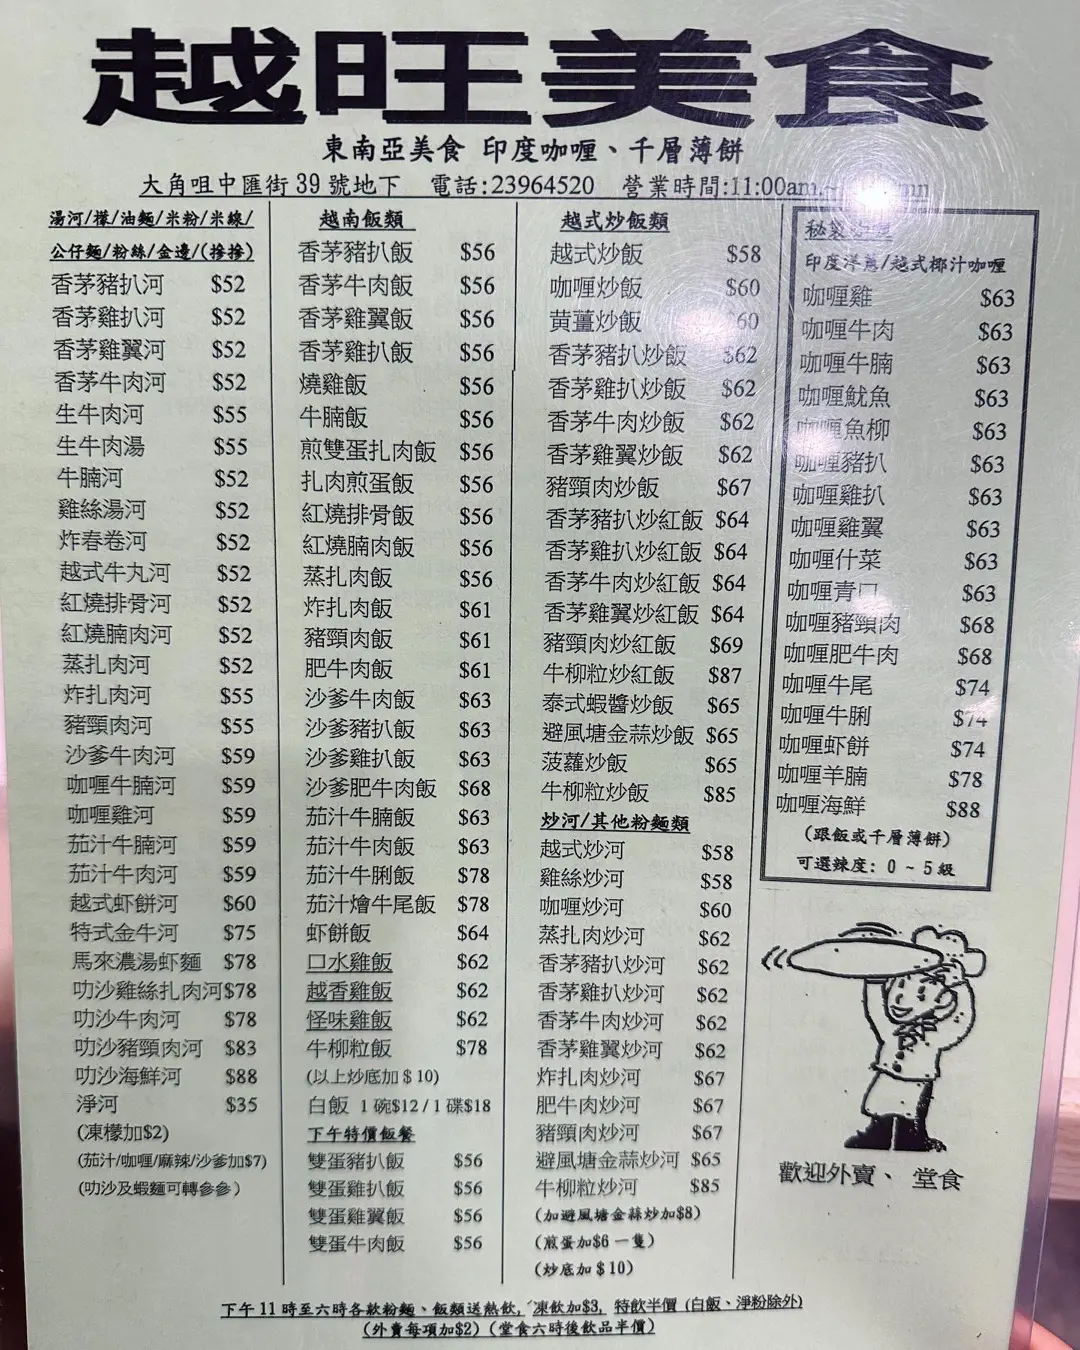 越旺美食
東南亞美食 印度咖喱、千層薄餅
大角咀中匯街 39 號地下 電話:23964520 營業時間:11:00am
湯河/檬/油麵/米粉/米線/
公仔麵/粉絲/金邊/(摻摻)
香茅豬扒河 $52
香茅雞扒河 $52
香茅雞翼河 $52
香茅牛肉河 $52
生牛肉河 $55
生牛肉湯 $55
牛腩河 $52
雞絲湯河 $52
炸春卷河 $52
越式牛丸河 $52
紅燒排骨河 $52
紅燒腩肉河 $52
蒸扎肉河 $52
炸扎肉河 $55
豬頸肉河 $55
沙爹牛肉河 $59
咖喱牛腩河 $59
咖喱雞河 $59
茄汁牛腩河 $59
茄汁牛肉河 $59
越式虾餅河 $60
特式金牛河 $75
馬來濃湯虾麵 $78
叻沙雞絲扎肉河$78
叻沙牛肉河 $78
叻沙豬頸肉河 $83
叻沙海鮮河 $88
淨河 $35
(凍檬加$2)
(茄汁/咖喱/麻辣/沙爹加$7)
(叻沙及蝦麵可轉參參)
越南飯類
香茅豬扒飯 $56
香茅牛肉飯 $56
香茅雞翼飯 $56
香茅雞扒飯 $56
燒雞飯 $56
牛腩飯 $56
煎雙蛋扎肉飯 $56
扎肉煎蛋飯 $56
紅燒排骨飯 $56
紅燒腩肉飯 $56
蒸扎肉飯 $56
炸扎肉飯 $61
豬頸肉飯 $61
肥牛肉飯 $61
沙爹牛肉飯 $63
沙爹豬扒飯 $63
沙爹雞扒飯 $63
沙爹肥牛肉飯 $68
茄汁牛腩飯 $63
茄汁牛肉飯 $63
茄汁牛脷飯 $78
茄汁燴牛尾飯 $78
虾餅飯 $64
口水雞飯 $62
越香雞飯 $62
怪味雞飯 $62
牛柳粒飯 $78
(以上炒底加 $ 10)
白飯 1 碗$12 / 1 碟$18
下午特價飯餐
雙蛋豬扒飯 $56
雙蛋雞扒飯 $56
雙蛋雞翼飯 $56
雙蛋牛肉飯 $56
越式炒飯類
越式炒飯 $58
咖喱炒飯 $60
黄薑炒飯 60
香茅豬扒炒飯 $62
香茅雞扒炒飯 $62
香茅牛肉炒飯 $62
香茅雞翼炒飯 $62
豬頸肉炒飯 $67
香茅豬扒炒紅飯 $64
香茅雞扒炒紅飯 $64
香茅牛肉炒紅飯 $64
香茅雞翼炒紅飯 $64
豬頸肉炒紅飯 $69
牛柳粒炒紅飯 $87
泰式蝦醬炒飯 $65
避風塘金蒜炒飯 $65
菠蘿炒飯 $65
牛柳粒炒飯 $85
炒河/其他粉麵類
越式炒河 $58
雞絲炒河 $58
咖喱炒河 $60
蒸扎肉炒河 $62
香茅豬扒炒河 $62
香茅雞扒炒河 $62
香茅牛肉炒河 $62
香茅雞翼炒河 $62
炸扎肉炒河 $67
肥牛肉炒河 $67
豬頸肉炒河 $67
避風塘金蒜炒河 $65
牛柳粒炒河 $85
(加避風塘金蒜炒加$8)
(煎蛋加$6 一隻)
(炒底加 $ 10)
秘製咖喱
印度洋蔥/越式椰汁咖喱
咖喱雞 $63
咖喱牛肉 $63
咖喱牛腩 $63
咖喱魷魚 $63
咖喱魚柳 $63
咖喱豬扒 $63
咖喱雞扒 $63
咖喱雞翼 $63
咖喱什菜 $63
咖喱青口 $63
咖喱豬頸肉 $68
咖喱肥牛肉 $68
咖喱牛尾 $74
咖喱牛脷 $74
咖喱虾餅 $74
咖喱羊腩 $78
咖喱海鮮 $88
(跟飯或千層薄餅)
可選辣度: 0 ~ 5 級
歡迎外賣、 堂食
下午 11 時至六時各款粉麵、飯類送熱飲, 凍飲加$3, 特飲半價 (白飯、淨粉除外)
(外賣每項加$2) (堂食六時後飲品半價)